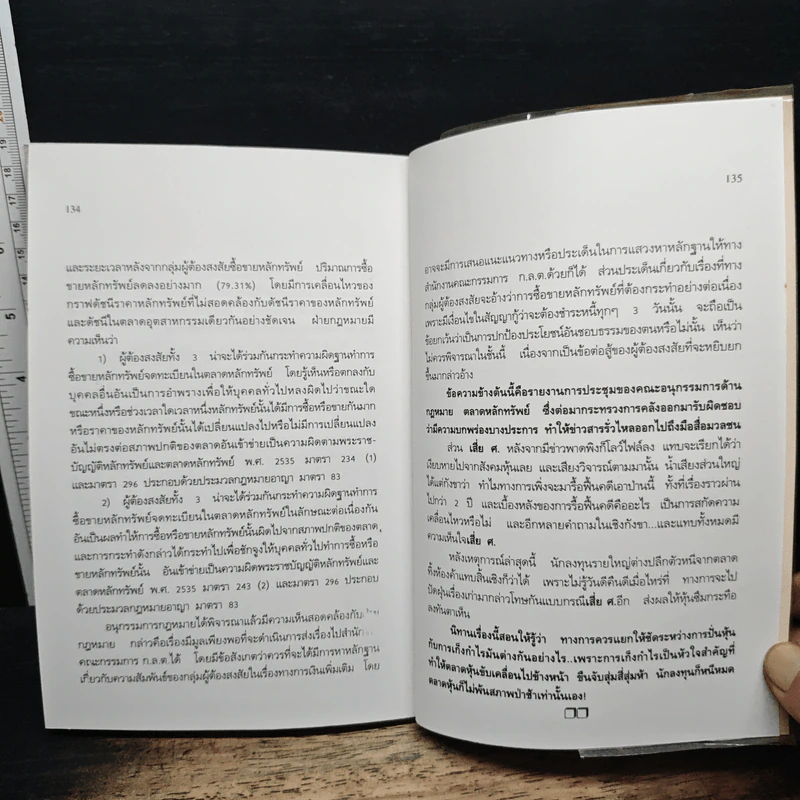 134
และระยะเวลาหลังจากกลุ่มผู้ต้องสงสัยซื้อขายหลักทรัพย์ ปริมาณการซื้อ
ขายหลักทรัพย์ลดลงอย่างมาก (79.31%) โดยมีการเคลื่อนไหวของ
กราฟดัชนีราคาหลักทรัพย์ที่ไม่สอดคล้องกับดัชนีราคาของหลักทรัพย์
และดัชนีในตลาดอุตสาหกรรมเดียวกันอย่างชัดเจน ฝ่ายกฎหมายมี
ความเห็นว่า
1) ผู้ต้องสงสัยทั้ง 3 น่าจะได้ร่วมกันกระทำความผิดฐานทำการ
ซื้อขายหลักทรัพย์จดทะเบียนในตลาดหลักทรัพย์ โดยรู้เห็นหรือตกลงกับ
บุคคลอื่นอันเป็นการอำพรางเพื่อให้บุคคลทั่วไปหลงผิดไปว่าขณะใด
ขณะหนึ่งหรือช่วงเวลาใดเวลาหนึ่งหลักทรัพย์นั้นได้มีการซื้อหรือขายกันมาก
หรือราคาของหลักทรัพย์นั้นได้เปลี่ยนแปลงไปหรือไม่มีการเปลี่ยนแปลง
อันไม่ตรงต่อสภาพปกติของตลาดอันเข้าข่ายเป็นความผิดตามพระราช-
บัญญัติหลักทรัพย์และตลาดหลักทรัพย์ พ.ศ. 2535 มาตรา 234 (1)
และมาตรา 296 ประกอบด้วยประมวลกฎหมายอาญา มาตรา 83
2) ผู้ต้องสงสัยทั้ง 3 น่าจะได้ร่วมกันกระทำความผิดฐานทำการ
ซื้อขายหลักทรัพย์จดทะเบียนในตลาดหลักทรัพย์ในลักษณะต่อเนื่องกัน
อันเป็นผลทำให้การซื้อหรือขายหลักทรัพย์นั้นผิดไปจากสภาพปกติของตลาด
และการกระทำดังกล่าวได้กระทำไปเพื่อชักจูงให้บุคคลทั่วไปทำการซื้อหรือ
ขายหลักทรัพย์นั้น อันเข้าข่ายเป็นความผิดพระราชบัญญัติหลักทรัพย์และ
ตลาดหลักทรัพย์ พ.ศ. 2535 มาตรา 243 (2) และมาตรา 296 ประกอบ
ด้วยประมวลกฎหมายอาญา มาตรา 83
อนุกรรมการได้พิจารณาแล้วมีความเห็นสอดคล้องกับ
กฎหมาย กล่าวคือเรื่องมีมูลเพียงพอที่จะดำเนินการส่งเรื่องไปสำนัก
คณะกรรมการ ก.ล.ต.ได้ โดยมีข้อสังเกตว่าควรที่จะได้มีการหาหลักฐาน
เกี่ยวกับความสัมพันธ์ของกลุ่มผู้ต้องสงสัยในเรื่องทางการเงินเพิ่มเติม โดย
135
อาจจะมีการเสนอแนะแนวทางหรือประเด็นในการแสวงหาหลักฐานให้ทาง
สำนักงานคณะกรรมการ ก.ล.ต.ด้วยก็ได้ ส่วนประเด็นเกี่ยวกับเรื่องที่ทาง
กลุ่มผู้ต้องสงสัยจะอ้างว่าการซื้อขายหลักทรัพย์ที่ต้องกระทำอย่างต่อเนื่อง
เพราะมีเงื่อนไขในสัญญากู้ว่าจะต้องชำระหนี้ทุกๆ 3 วันนั้น จะถือเป็น
ข้อยกเว้นว่าเป็นการปกป้องประโยชน์อันชอบธรรมของตนหรือไม่นั้น เห็นว่า
ไม่ควรพิจารณาในชั้นนี้ เนื่องจากเป็นข้อต่อสู้ของผู้ต้องสงสัยที่จะหยิบยก
ขึ้นมากล่าวอ้าง
ข้อความข้างต้นนี้คือรายงานการประชุมของคณะอนุกรรมการด้าน
กฎหมาย ตลาดหลักทรัพย์ ซึ่งต่อมากระทรวงการคลังออกมารับผิดชอบ
ว่ามีความบกพร่องบางประการ ทำให้ข่าวสารรั่วไหลออกไปถึงมือสื่อมวลชน
ส่วน เสี่ย ศ. หลังจากมีข่าวพาดพิงก็โลว์ไฟล์ลง แทบจะเรียกได้ว่า
เงียบหายไปจากสังคมหุ้นเลย และเสียงวิจารณ์ตามมานั้น น้ำเสียงส่วนใหญ่
ได้แต่กังขาว่า ทำไมทางการเพิ่งจะมารื้อฟื้นคดีเอาป่านนี้ ทั้งที่เรื่องราวผ่าน
ไปกว่า 2 ปี และเบื้องหลังของการรื้อฟื้นคดีคืออะไร เป็นการสกัดความ
เคลื่อนไหวหรือไม่ และอีกหลายคำถามในเชิงกังขา...และแทบทั้งหมดมี
ความเห็นใจเสี่ย ศ.
หลังเหตุการณ์ล่าสุดนี้ นักลงทุนรายใหญ่ต่างปลีกตัวหนีจากตลาด
ทั้งห้องค้าแทบสิ้นเชิงก็ว่าได้ เพราะไม่รู้วันดีคืนดีเมื่อไหร่ที่ ทางการจะไป
ปัดฝุ่นเรื่องเก่ามากล่าวโทษกันแบบกรณีเสี่ย ศ.อีก ส่งผลให้หุ้นซึมกระทือ
ลงทันตาเห็น
นิทานเรื่องนี้สอนให้รู้ว่า ทางการควรแยกให้ชัดระหว่างการปั่นหุ้น
กับการเก็งกำไรมันต่างกันอย่างไร..เพราะการเก็งกำไรเป็นหัวใจสำคัญที่
ทำให้ตลาดหุ้นขับเคลื่อนไปข้างหน้า ขืนจับสุ่มสี่สุ่มห้า นักลงทุนก็หนีหมด
ตลาดหุ้นก็ไม่พ้นสภาพป่าช้าเท่านั้นเอง!